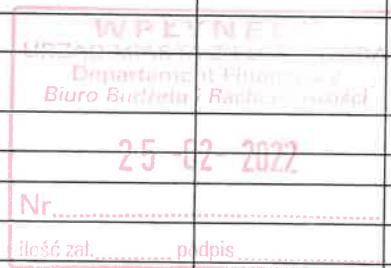 WPŁYNĘ
URZĄD MIASTA
Departament Finansowy
Biuro Budżetu i Rachunkowości
25 -02- 2022
Nr
ilość zał. podpis